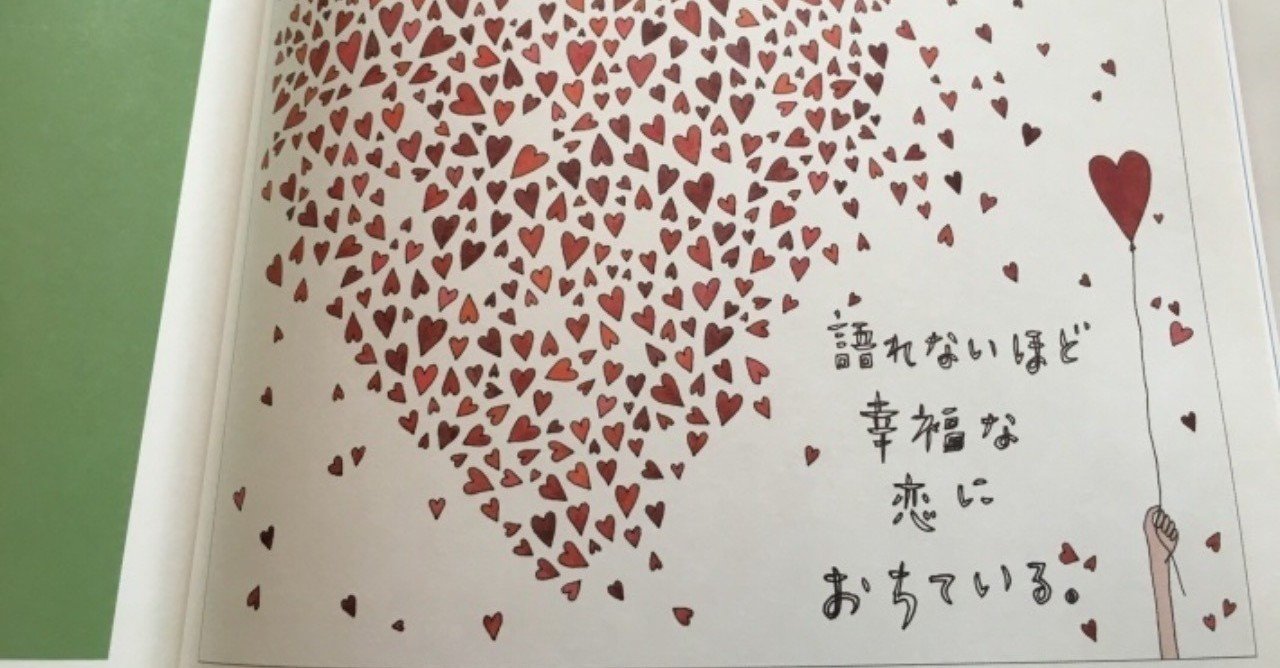 語れないほど
幸福な
恋に
おちている。